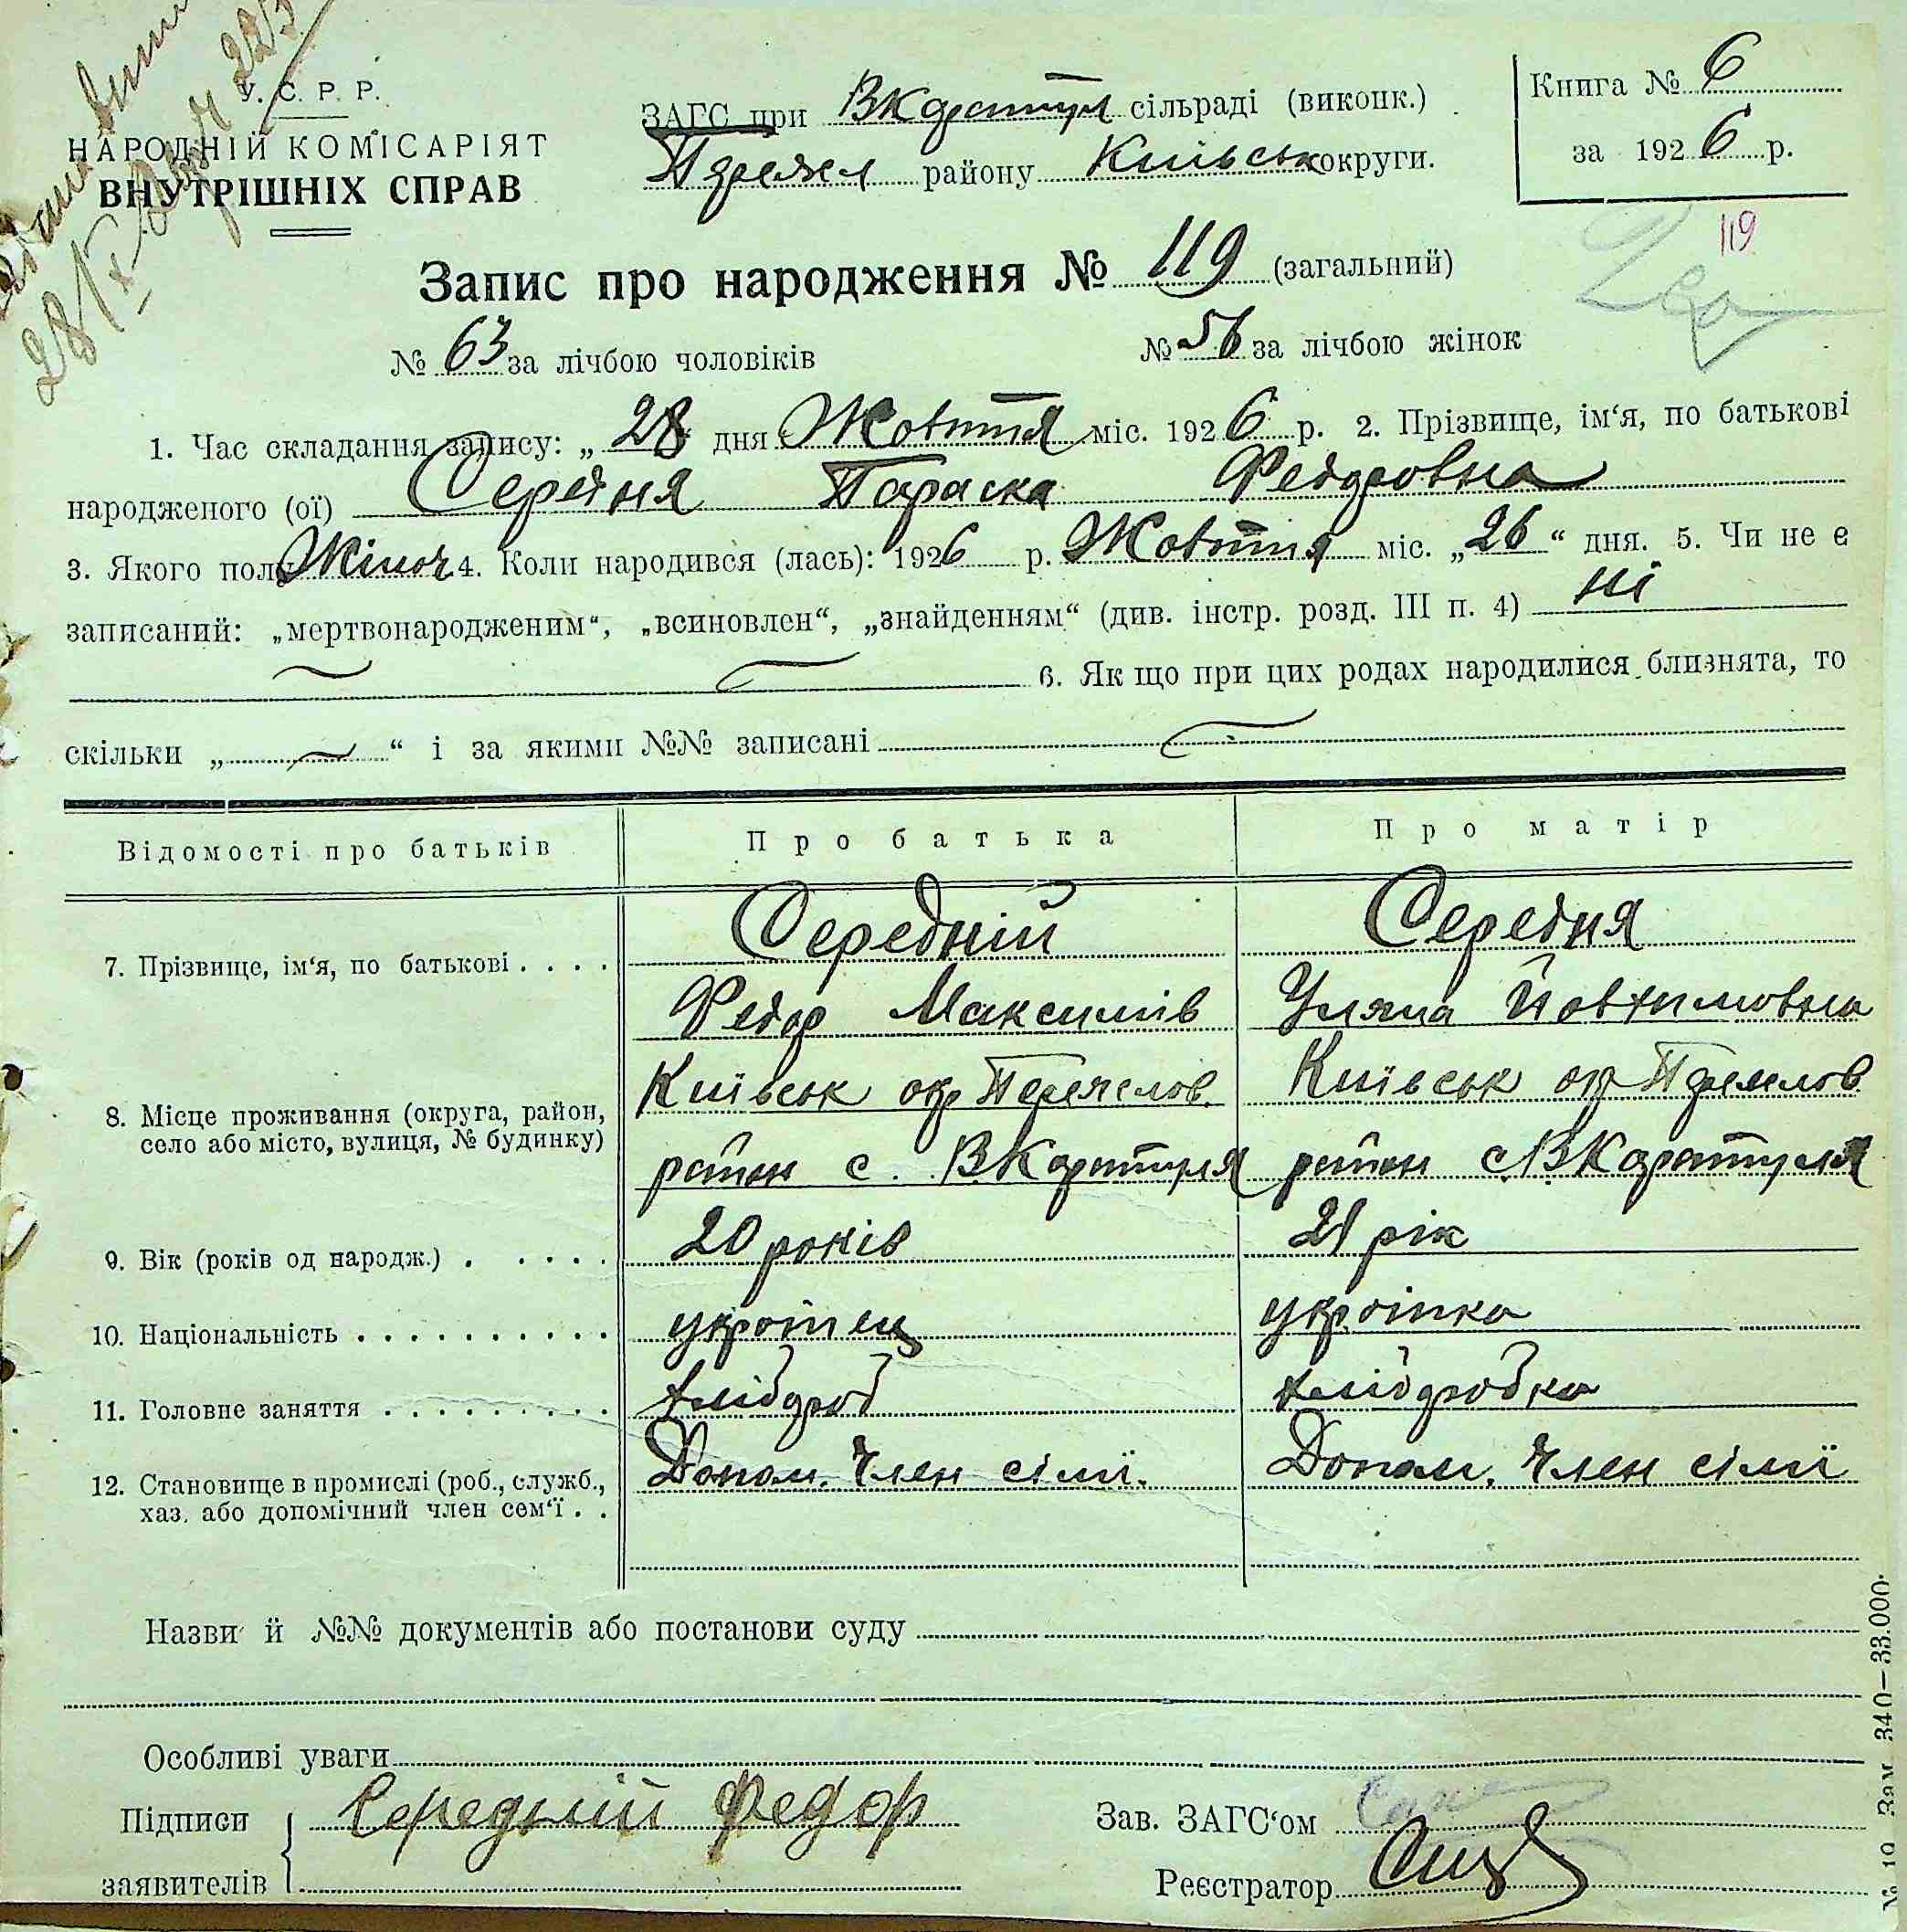 У. С. Р. Р.
НАРОДНІЙ КОМІСАРІЯТ
ВНУТРІШНІХ СПРАВ
28/X
ЗАГС при ВКаратул сільраді (виконк.)
Переясл району Київськ округи.
Книга № 6
за 1926 р.
119
Запис про народження № 119 (загальний)
№ 63 за лічбою чоловіків № 56 за лічбою жінок
1. Час складання запису: „ 28 дня Жовтня міс. 1926 р. 2. Прізвище, ім‘я, по батькові
народженого (ої) Середня Параска Федоровна
3. Якого полу Жіноч 4. Коли народився (лась): 1926 р. Жовтня міс. „26“ дня. 5. Чи не є
записаний: „мертвонародженим“, „всиновлен“, „знайденням“ (див. інстр. розд. III п. 4) ні
6. Як що при цих родах народилися близнята, то
скільки „ “ і за якими №№ записані
Відомості про батьків Про батька Про матір
7. Прізвище, ім‘я, по батькові . . . . Середній Середня
Федор Максимів Уляна Йовхимовна
8. Місце проживання (округа, район, Київськ окр Переяслов. Київськ окр Переяслов
село або місто, вулиця, № будинку) район с. ВКаратуля район с. ВКаратуля
9. Вік (років од народж.) . . . . . 20 років 21 рік
10. Національність . . . . . . . . . . українец українка
11. Головне заняття . . . . . . . . . хлібороб хліборобка
12. Становище в промислі (роб., служб., Допом. Член сімї. Допом. Член сімї
хаз. або допомічний член сем‘ї . .
Назви й №№ документів або постанови суду
Особливі уваги
Підписи Середьний Федор Зав. ЗАГС‘ом
заявителів Реєстратор
№ 10 Зам. 340—33.000.